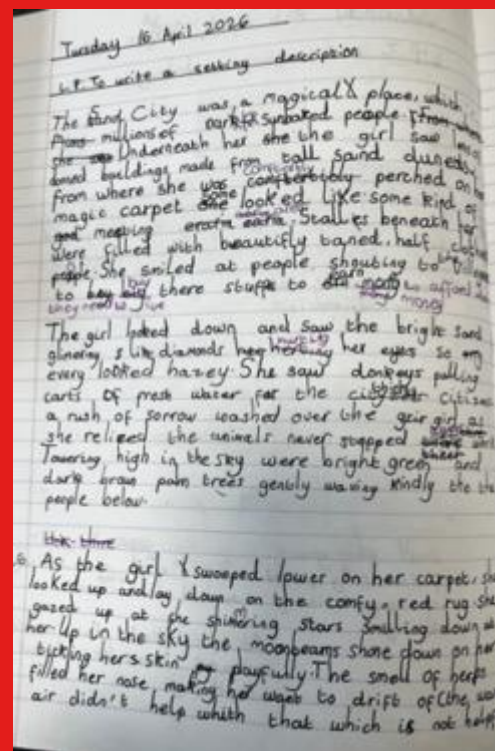 Tuesday 16 April 2026
L.P. To write a setting description
The Sand City was a magical place, which
millions of dark sunbaked people
Underneath her she the girl saw
domed buildings made from tall sand dunes
from where she was comfortably perched on her
magic carpet looked like some kind of
meeting Stalles beneath her
were filled with beautifly taned, half
people. She smiled at people shouting to the
to buy there stuff to earn money to afford
they need to live money
The girl looked down and saw the bright sand
glimering s like diamonds hurting her eyes so
every looked hazey. She saw donkeys pulling
carts of fresh water for the citys citizens
a rush of sorrow washed over the girl as
she relised the animals never stopped
Towering high in the sky were bright green and
dark brown palm trees gently waving kindly the the
people below.
As the girl swooped lower on her carpet, she
looked up and lay down on the comfy, red rug she
gazed up at the shimering stars smiling down at
her. Up in the sky the moonbeams shone down on her
ticking hers skin playfully. The smell of herbs
filled her nose, making her want to drift of (the
air didn't help whith that which is not helpf